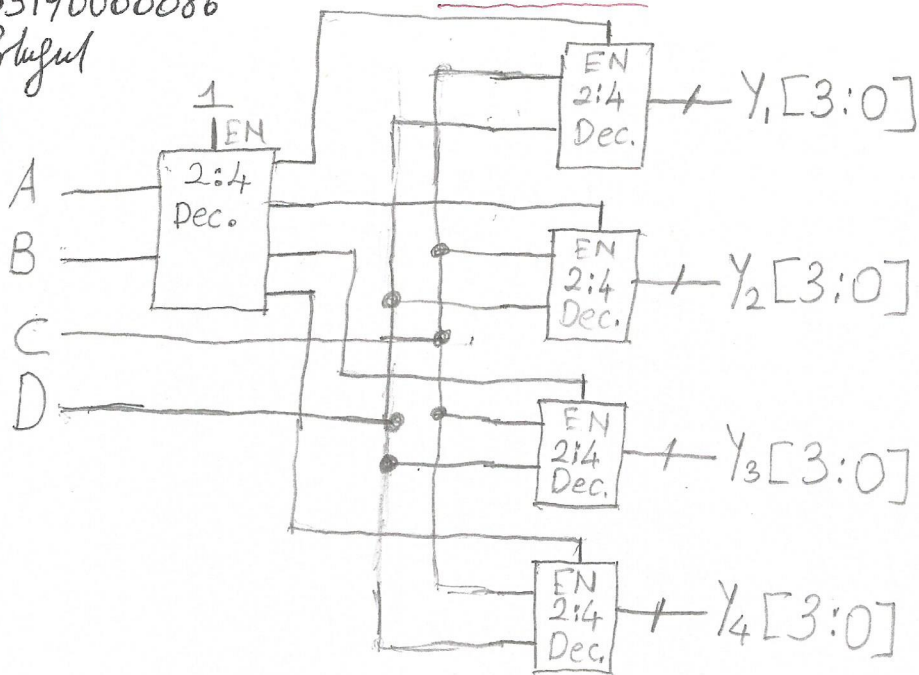 1
EN
2:4
Dec.
A
B
C
D
EN
2:4
Dec.
Y₁[3:0]
EN
2:4
Dec.
Y₂[3:0]
EN
2:4
Dec.
Y₃[3:0]
EN
2:4
Dec.
Y₄[3:0]